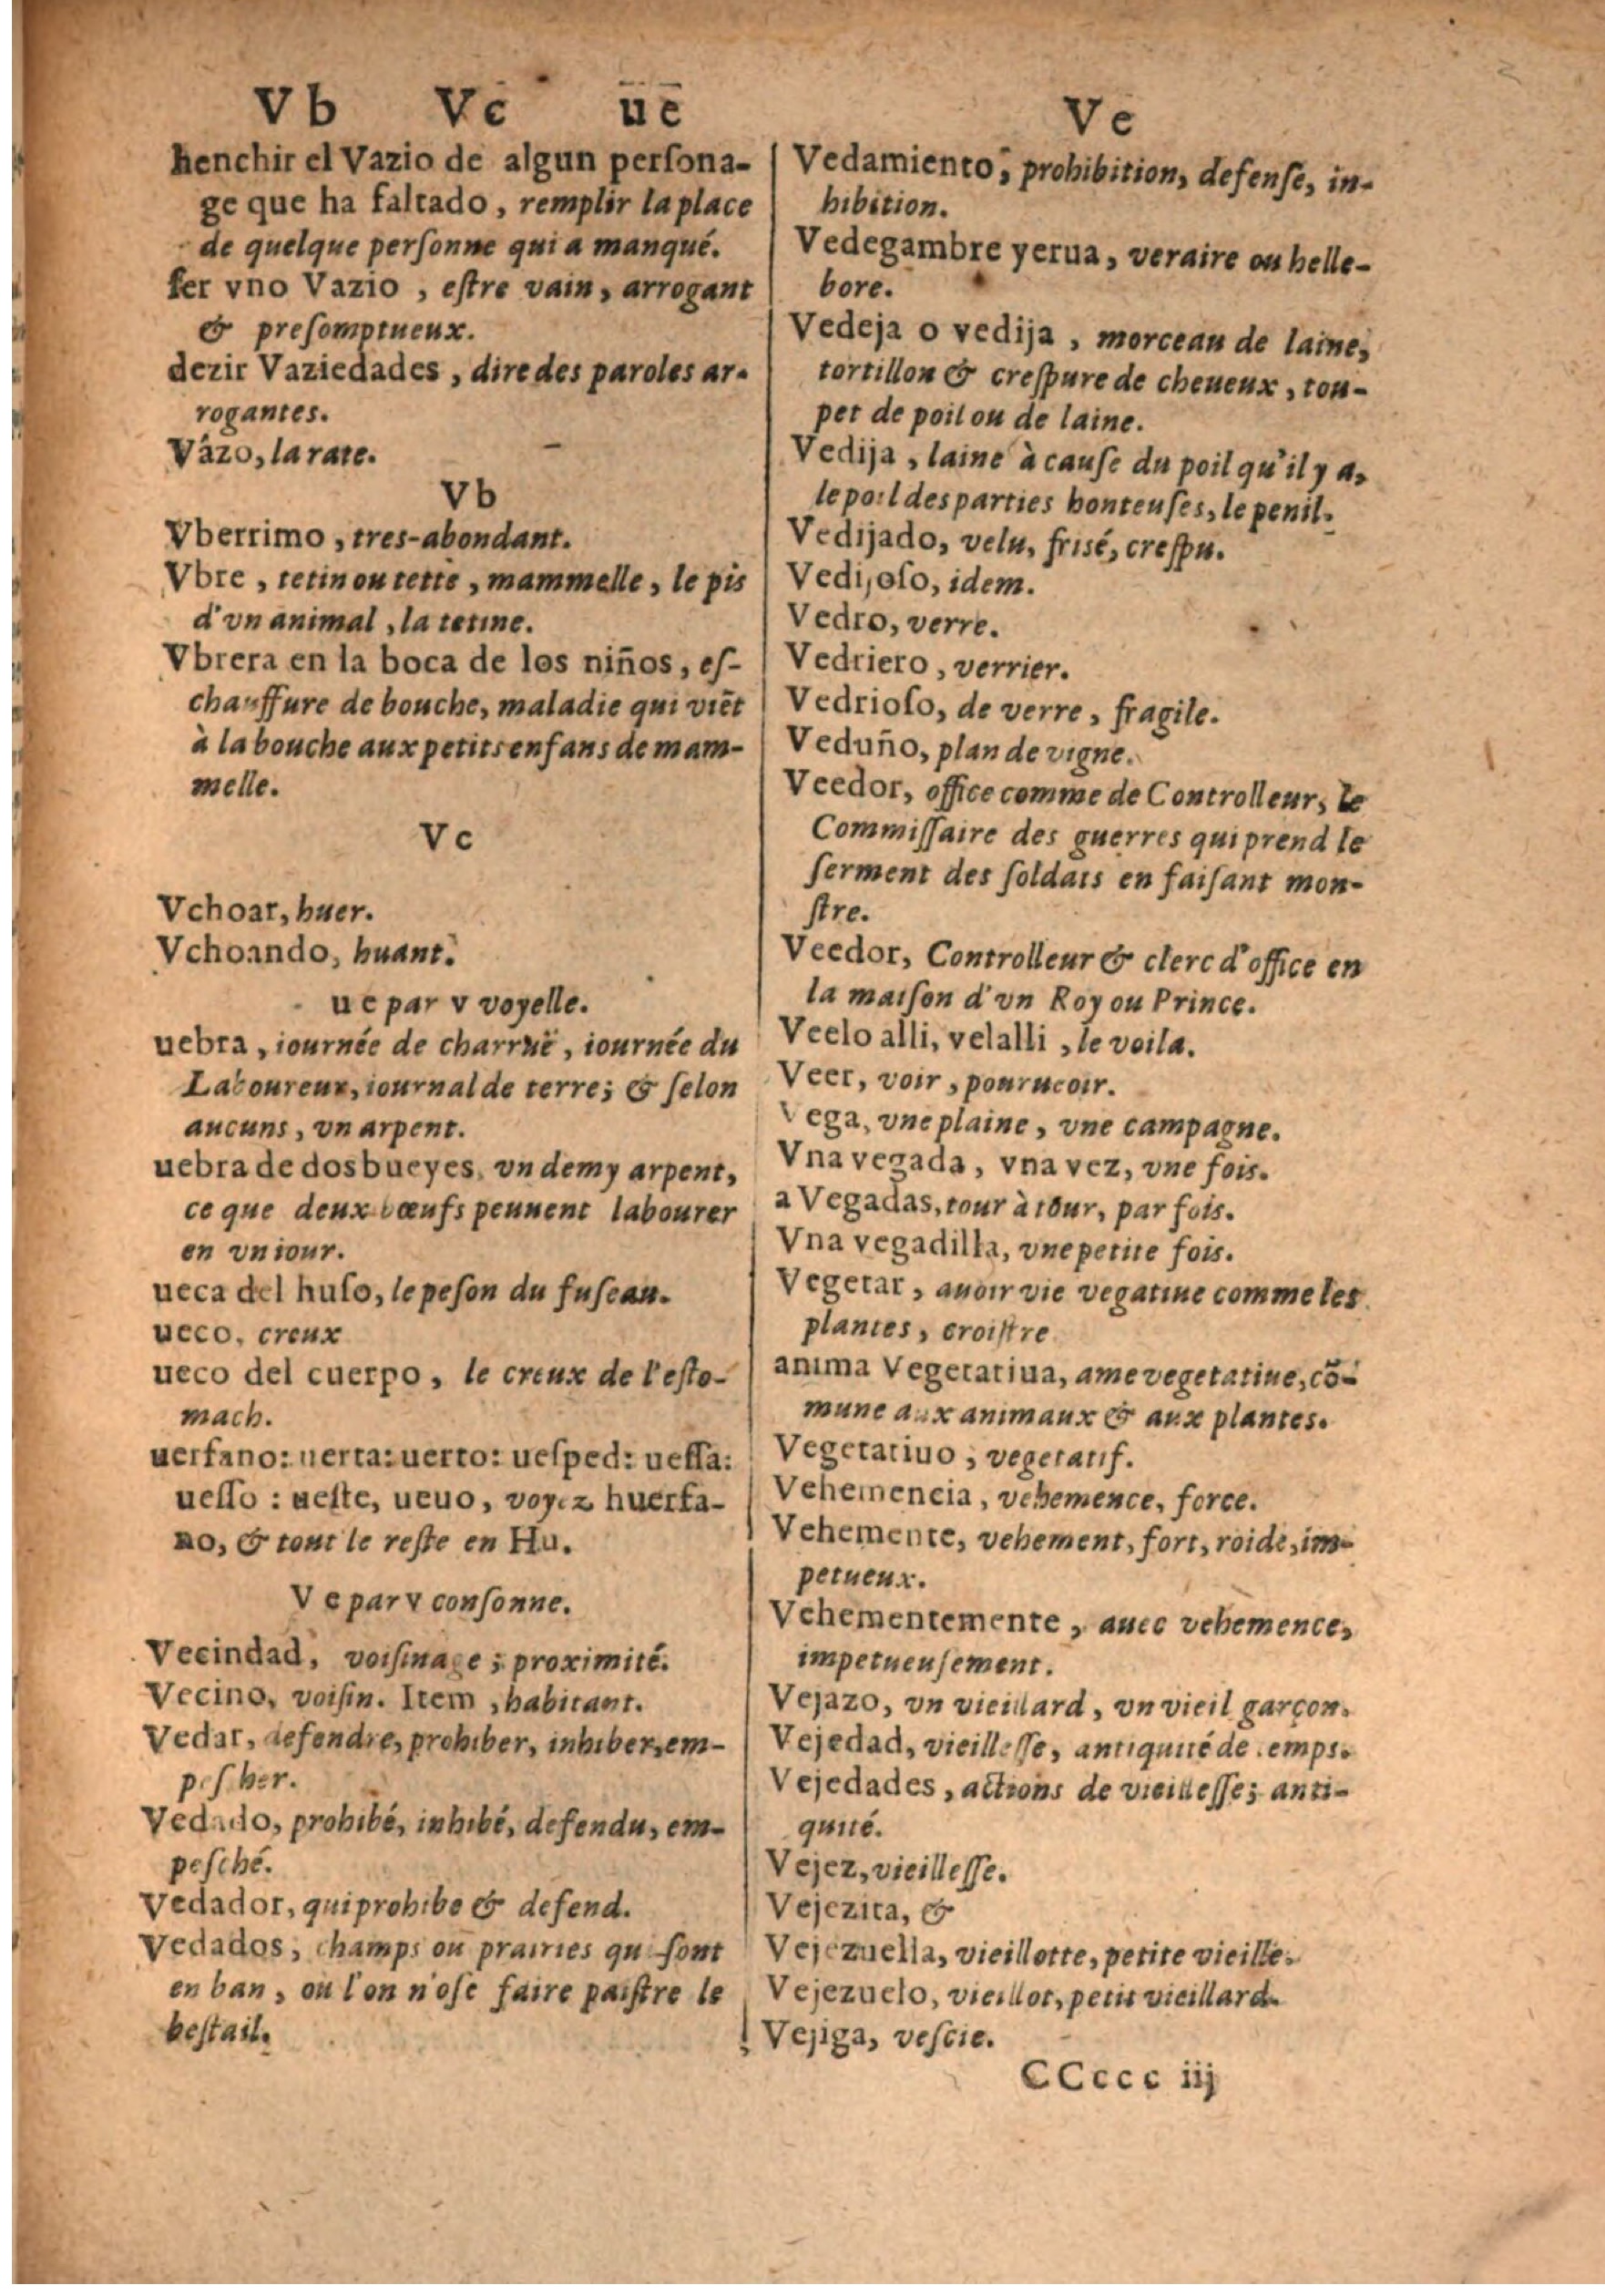 Vb Vc ue
henchir el Vazio de algun perſona-
ge que ha faltado, remplir la place
de quelque perſonne qui a manqué.
ſer vno Vazio, eſtre vain, arrogant
& preſomptueux.
dezir Vaziedades, dire des paroles ar-
rogantes.
Vâzo, la rate.
Vb
Vberrimo, tres-abondant.
Vbre, tetin ou tette, mammelle, le pis
d'vn animal, la tetine.
Vbrera en la boca de los niños, eſ-
chauffure de bouche, maladie qui viēt
à la bouche aux petits enfans de mam-
melle.
Vc
Vchoar, huer.
Vchoando, huant.
ue par v voyelle.
uebra, iournée de charruë, iournée du
Laboureur, iournal de terre; & ſelon
aucuns, vn arpent.
uebra de dos bueyes, vn demy arpent,
ce que deux bœufs peuuent labourer
en vn iour.
ueca del huſo, le peſon du fuſeau.
ueco, creux
ueco del cuerpo, le creux de l'eſto-
mach.
uerfano: uerta: uerto: ueſped: ueſſa:
ueſſo: ueſte, ueuo, voyez huerfa-
no, & tout le reſte en Hu.
Ve par v conſonne.
Vecindad, voiſinage; proximité.
Vecino, voiſin. Item, habitant.
Vedar, defendre, prohiber, inhiber, em-
peſcher.
Vedado, prohibé, inhibé, defendu, em-
peſché.
Vedador, qui prohibe & defend.
Vedados, champs ou prairies qui ſont
en ban, ou l'on n'oſe faire paiſtre le
beſtail.
Ve
Vedamiento, prohibition, defenſe, in-
hibition.
Vedegambre yerua, veraire ou helle-
bore.
Vedeja o vedija, morceau de laine,
tortillon & creſpure de cheueux, tou-
pet de poil ou de laine.
Vedija, laine à cauſe du poil qu'il y a,
le poil des parties honteuſes, le penil.
Vedijado, velu, frisé, creſpu.
Vedijoſo, idem.
Vedro, verre.
Vedriero, verrier.
Vedrioſo, de verre, fragile.
Veduño, plan de vigne.
Veedor, office comme de Controlleur, le
Commiſſaire des guerres qui prend le
ſerment des ſoldats en faiſant mon-
ſtre.
Veedor, Controlleur & clerc d'office en
la maiſon d'vn Roy ou Prince.
Veelo alli, velalli, le voila.
Veer, voir, pourueoir.
Vega, vne plaine, vne campagne.
Vna vegada, vna vez, vne fois.
a Vegadas, tour à tour, par fois.
Vna vegadilla, vne petite fois.
Vegetar, auoir vie vegatiue comme les
plantes, croiſtre
anima Vegetatiua, ame vegetatiue, cõ-
mune aux animaux & aux plantes.
Vegetatiuo, vegetatif.
Vehemencia, vehemence, force.
Vehemente, vehement, fort, roide, im-
petueux.
Vehementemente, auec vehemence,
impetueuſement.
Vejazo, vn vieillard, vn vieil garçon.
Vejedad, vieilleſſe, antiquité de temps.
Vejedades, actions de vieilleſſe; anti-
quité.
Vejez, vieilleſſe.
Vejezita, &
Vejezuella, vieillotte, petite vieille.
Vejezuelo, vieillot, petit vieillard.
Vejiga, veſcie.
CCccc iij